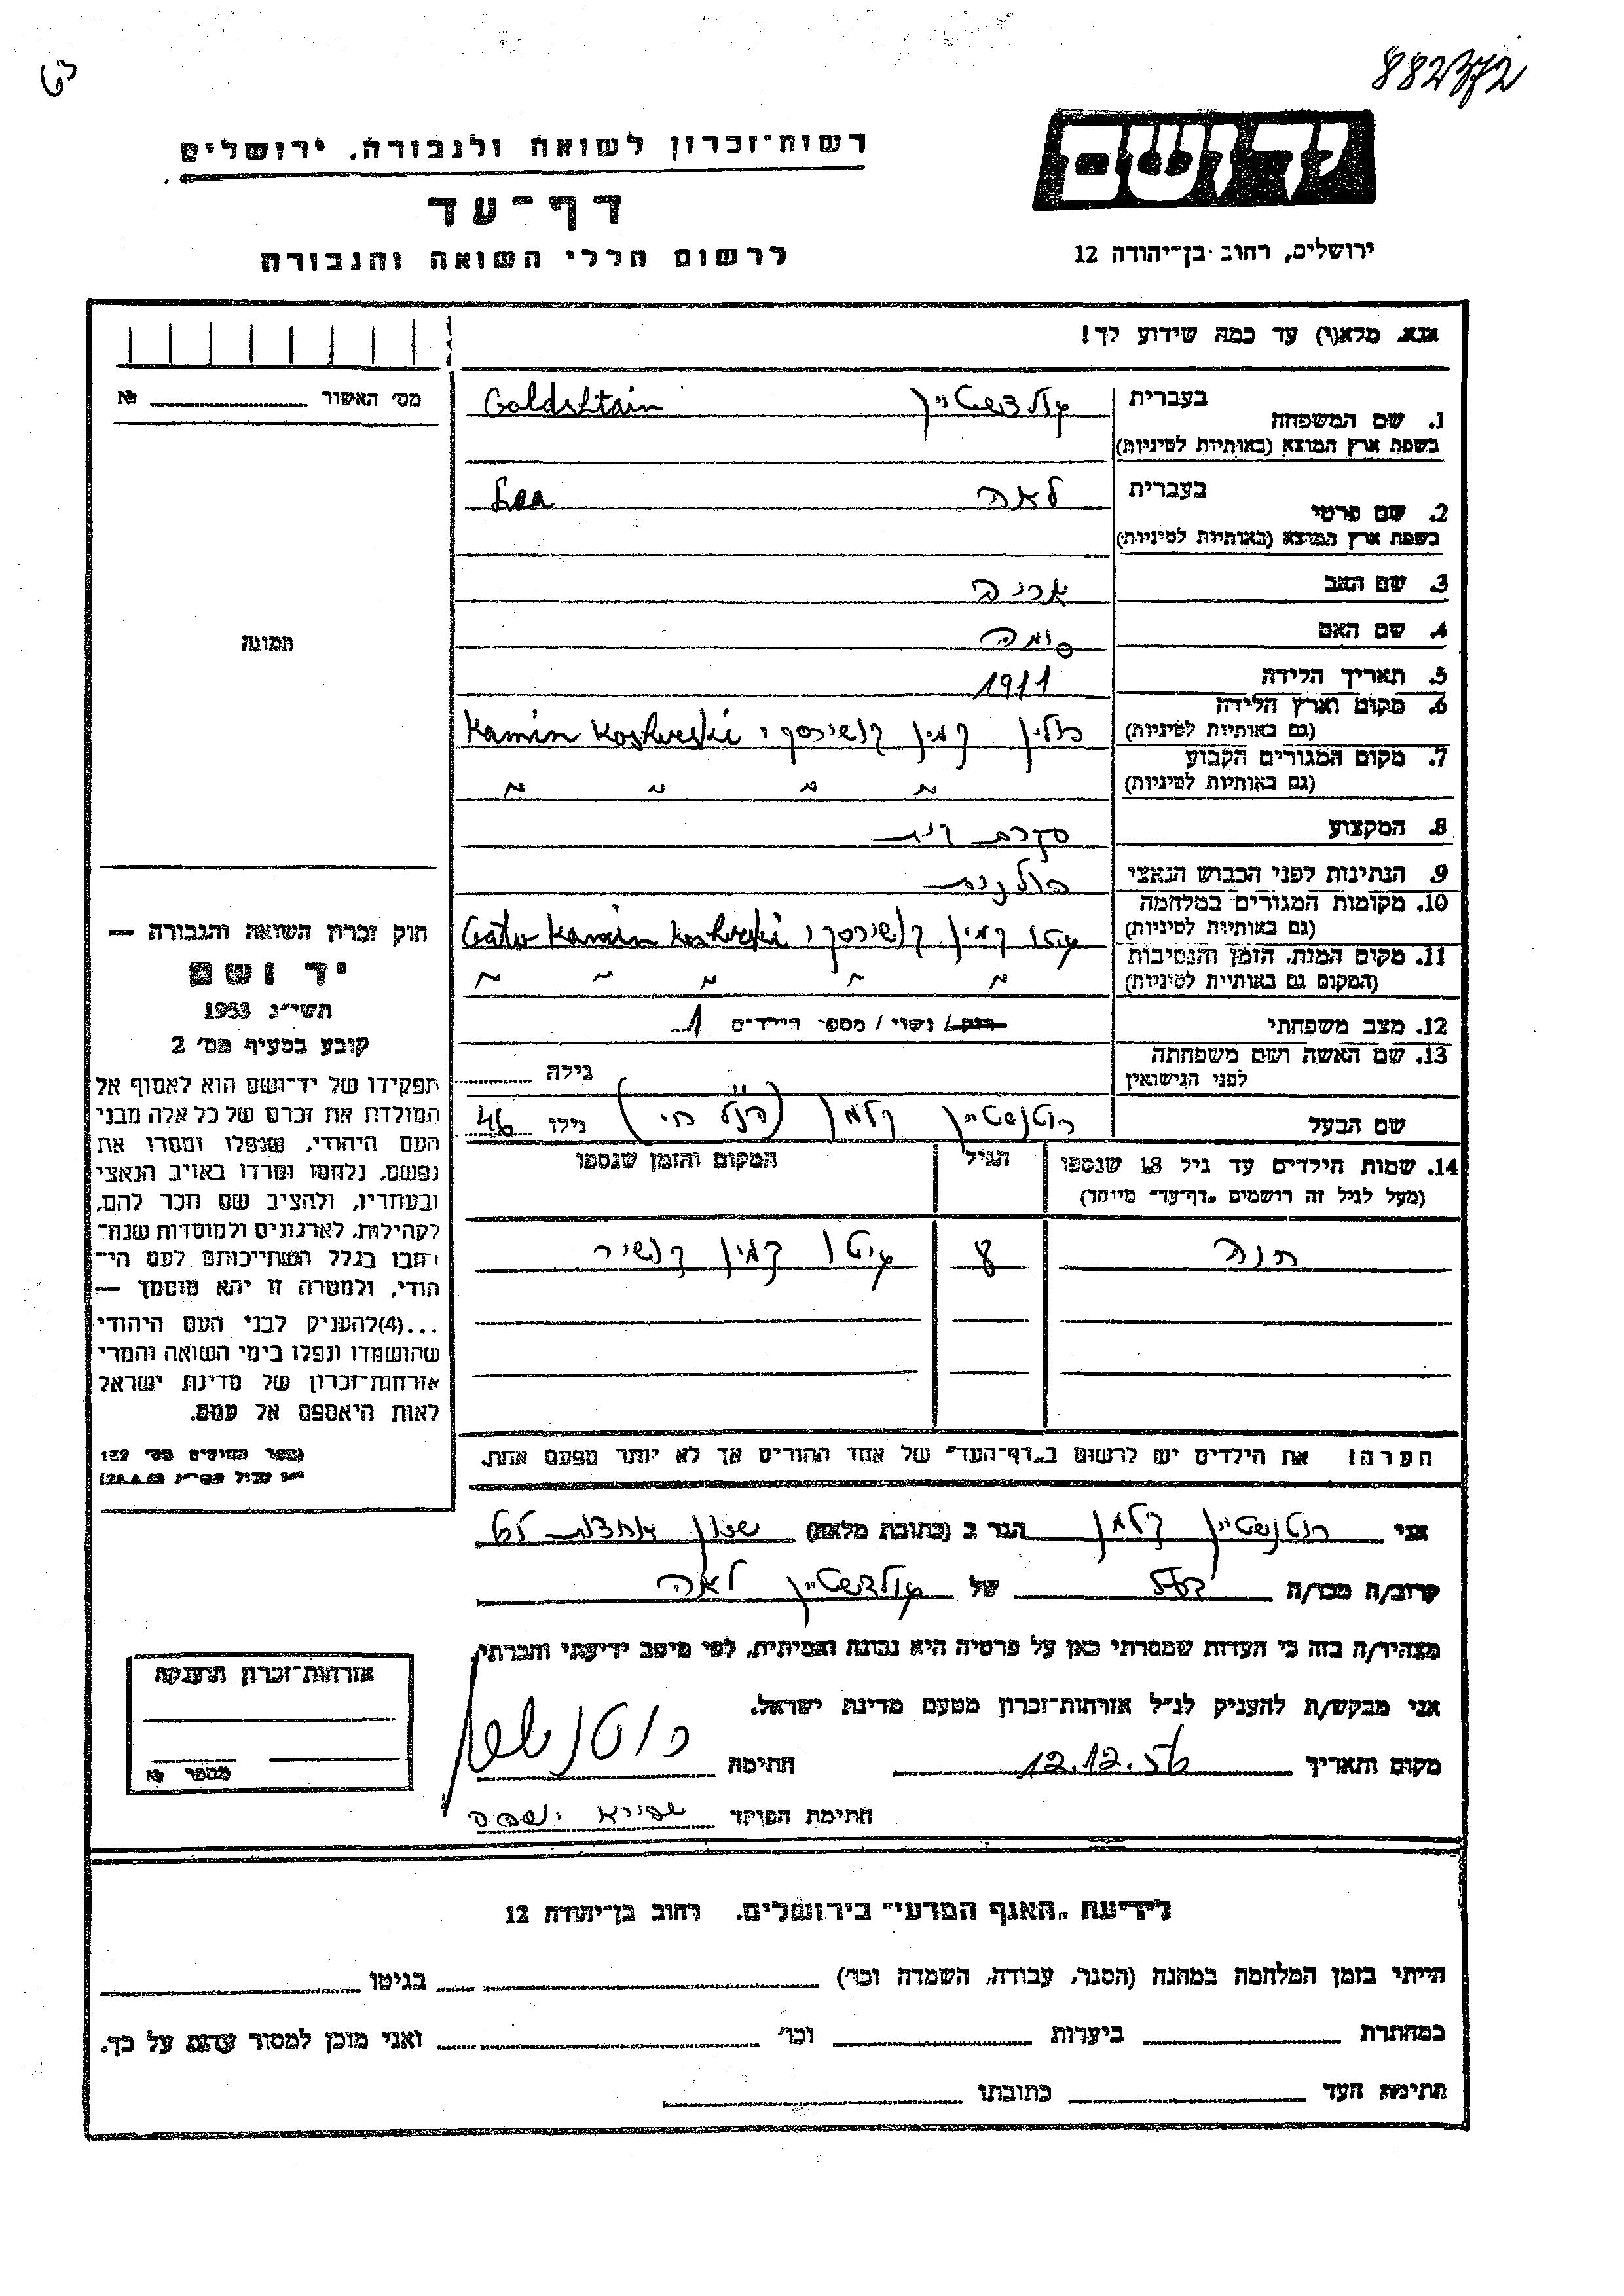 882372
רשות־זכרון לשואה ולגבורה, ירושלים
יד ושם
דף־עד
לרשום חללי השואה והגבורה
ירושלים, רחוב בן־יהודה 12
אנא, מלא(י) עד כמה שידוע לך!
מס' האשור № 
1. שם המשפחה בעברית גולדשטיין Goldshtain
בשפת ארץ המוצא (באותיות לטיניות)
2. שם פרטי בעברית לאה Lea
בשפת ארץ המוצא (באותיות לטיניות)
3. שם האב אריה
4. שם האם סומה
תמונה
5. תאריך הלידה 1911
6. מקום וארץ הלידה (גם באותיות לטיניות) פולין קמין קושירסקי Kamin Kosherski
7. מקום המגורים הקבוע (גם באותיות לטיניות) " " " "
8. המקצוע עקרת בית
9. הנתינות לפני הכבוש הנאצי פולנית
10. מקומות המגורים במלחמה (גם באותיות לטיניות) גיטו קמין קושירסקי Gato Kamin Kosherski
11. מקום המות, הזמן והנסיבות (המקום גם באותיות לטיניות) " " " " "
12. מצב משפחתי רוק/ נשוי/ מספר הילדים 1
13. שם האשה ושם משפחתה לפני הנישואין גילה
שם הבעל רוטנשטיין קלמן (הנ"ל חי) גילו 46
14. שמות הילדים עד גיל 18 שנספו הגיל המקום והזמן שנספו
(מעל לגיל זה רושמים „דף־עד" מיוחד)
חנה 8 גיטו קמין קושיר
חוק זכרון השואה והגבורה —
יד ושם
תשי"ג 1953
קובע בסעיף מס' 2
תפקידו של יד־ושם הוא לאסוף אל
המולדת את זכרם של כל אלה מבני
העם היהודי, שנפלו ומסרו את
נפשם, נלחמו ומרדו באויב הנאצי
ובעוזריו, ולהציב שם וזכר להם,
לקהילות, לארגונים ולמוסדות שנח־
רבו בגלל השתייכותם לעם הי־
הודי, ולמטרה זו יהא מוסמך —
...(4)להעניק לבני העם היהודי
שהושמדו ונפלו בימי השואה והמרי
אזרחות־זכרון של מדינת ישראל
לאות היאספם אל עמם.
(ספר החוקים מס' 132
הערה! את הילדים יש לרשום ב„דף־העד" של אחד ההורים אך לא יותר מפעם אחת.
אני רוטנשטיין קלמן הגר ב (כתובת מלאה) שכון
קרוב/ה מכר/ה בעל של גולדשטיין לאה
מצהיר/ה בזה כי העדות שמסרתי כאן על פרטיה היא נכונה ואמיתית, לפי מיטב ידיעתי והכרתי.
אני מבקש/ת להעניק לנ"ל אזרחות־זכרון מטעם מדינת ישראל.
מקום ותאריך 12.12.56 חתימה
חתימת הפוקד שפירא
אזרחות־זכרון הוענקה
מספר №
לידיעת „האגף המדעי" בירושלים, רחוב בן־יהודה 12
הייתי בזמן המלחמה במחנה (הסגר, עבודה, השמדה וכו') בגיטו
במחתרת ביערות וכו' ואני מוכן למסור עדות על כך.
חתימת העד כתובתו